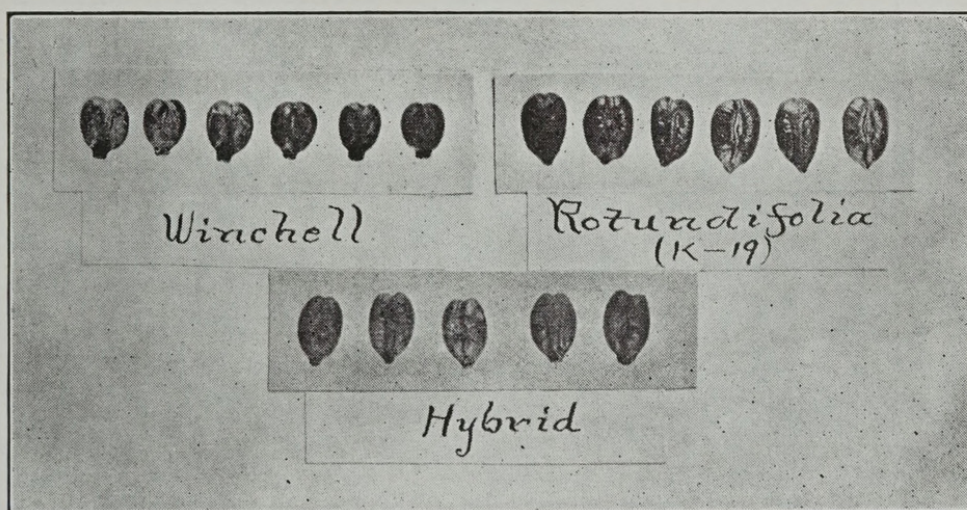 Winchell
Rotundifolia
(K-19)
Hybrid